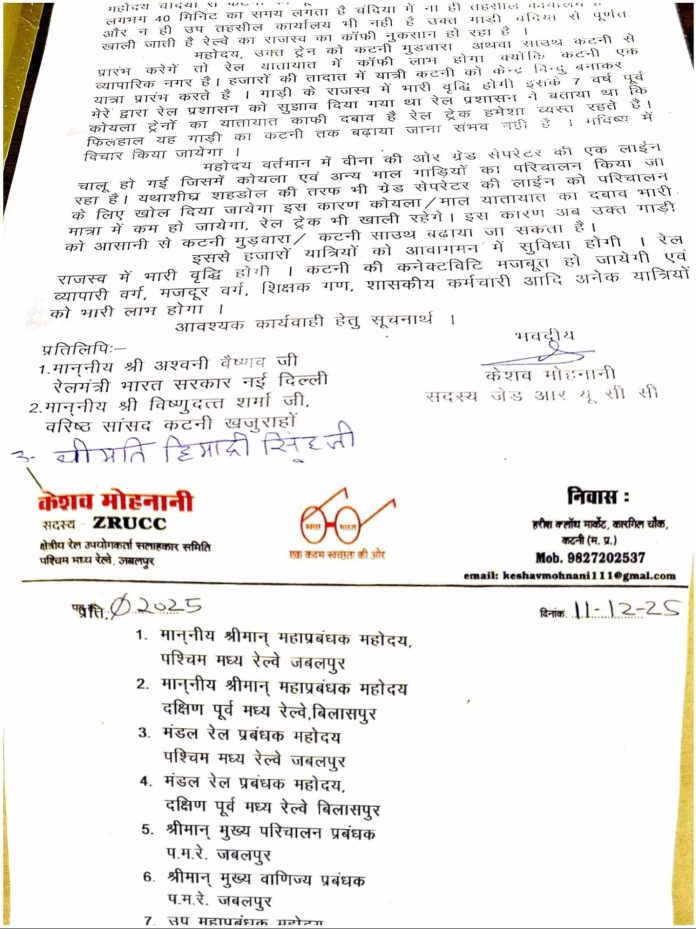 महोदय चंदिया से कटनी
लगभग 40 मिनिट का समय लगता है चंदिया में ना ही तहसील कार्यालय है
और न ही उप तहसील कार्यालय भी नही है उक्त गाड़ी चंदिया से पूर्णतः
खाली जाती है रेल्वे का राजस्व का कॉफी नुकसान हो रहा है ।
महोदय, उक्त ट्रेन को कटनी मुडवारा अथवा साउथ कटनी से
प्रारंभ करेगें तो रेल यातायात में कॉफी लाभ होगा क्योंकि कटनी एक
व्यापारिक नगर है। हजारों की तादात में यात्री कटनी को केन्द्र बिन्दु बनाकर
यात्रा प्रारंभ करते है । गाडी के राजस्व में भारी वृद्धि होगी इसके 7 वर्ष पूर्व
मेरे द्वारा रेल प्रशासन को सुझाव दिया गया था रेल प्रशासन ने बताया था कि
कोयला ट्रेनों का यातायात काफी दबाव है रेल ट्रेक हमेशा व्यस्त रहते है।
फिलहाल यह गाड़ी का कटनी तक बढ़ाया जाना संभव नही है । भविष्य में
विचार किया जायेगा ।
महोदय वर्तमान में वीना की ओर ग्रेड सेपरेटर की एक लाईन
चालू हो गई जिसमें कोयला एवं अन्य माल गाड़ियों का परिचालन किया जा
रहा है। यथाशीघ्र शहडोल की तरफ भी ग्रेड सेपरेटर की लाईन को परिचालन
के लिए खोल दिया जायेगा इस कारण कोयला/माल यातायात का दबाव भारी
मात्रा में कम हो जायेगा, रेल ट्रेक भी खाली रहेगे। इस कारण अब उक्त गाड़ी
को आसानी से कटनी मुड़वारा/ कटनी साउथ बढाया जा सकता है।
इससे हजारों यात्रियों को आवागमन में सुविधा होगी । रेल
राजस्व में भारी वृद्धि होगी । कटनी की कनेक्टविटि मजबूत हो जायेगी एवं
व्यापारी वर्ग, मजदूर वर्ग, शिक्षक गण, शासकीय कर्मचारी आदि अनेक यात्रियों
को भारी लाभ होगा ।
आवश्यक कार्यवाही हेतु सूचनार्थ ।
भवदीय
केशव मोहनानी
सदस्य जेड आर यू सी सी
प्रतिलिपिः–
1.माननीय श्री अश्वनी वैष्णव जी
रेलमंत्री भारत सरकार नई दिल्ली
2.माननीय श्री विष्णुदत्त शर्मा जी,
वरिष्ठ सांसद कटनी खजुराहों
3- श्रीमति हिमाद्री सिंह जी
केशव मोहनानी
सदस्य - ZRUCC
क्षेत्रीय रेल उपयोगकर्ता सलाहकार समिति
पश्चिम मध्य रेल्वे, जबलपुर
स्वच्छ भारत
एक कदम स्वच्छता की ओर
निवास :
हरीश क्लॉथ मार्केट, कारगिल चौक,
कटनी (म. प्र.)
Mob. 9827202537
email: keshavmohnani111@gmail.com
प्रति, 2025
दिनांक. 11-12-25
1. माननीय श्रीमान् महाप्रबंधक महोदय,
पश्चिम मध्य रेल्वे जबलपुर
2. माननीय श्रीमान् महाप्रबंधक महोदय
दक्षिण पूर्व मध्य रेल्वे,बिलासपुर
3. मंडल रेल प्रबंधक महोदय
पश्चिम मध्य रेल्वे जबलपुर
4. मंडल रेल प्रबंधक महोदय,
दक्षिण पूर्व मध्य रेल्वे बिलासपुर
5. श्रीमान् मुख्य परिचालन प्रबंधक
प.म.रे. जबलपुर
6. श्रीमान् मुख्य वाणिज्य प्रबंधक
प.म.रे. जबलपुर
7. उप महाप्रबंधक महोदय